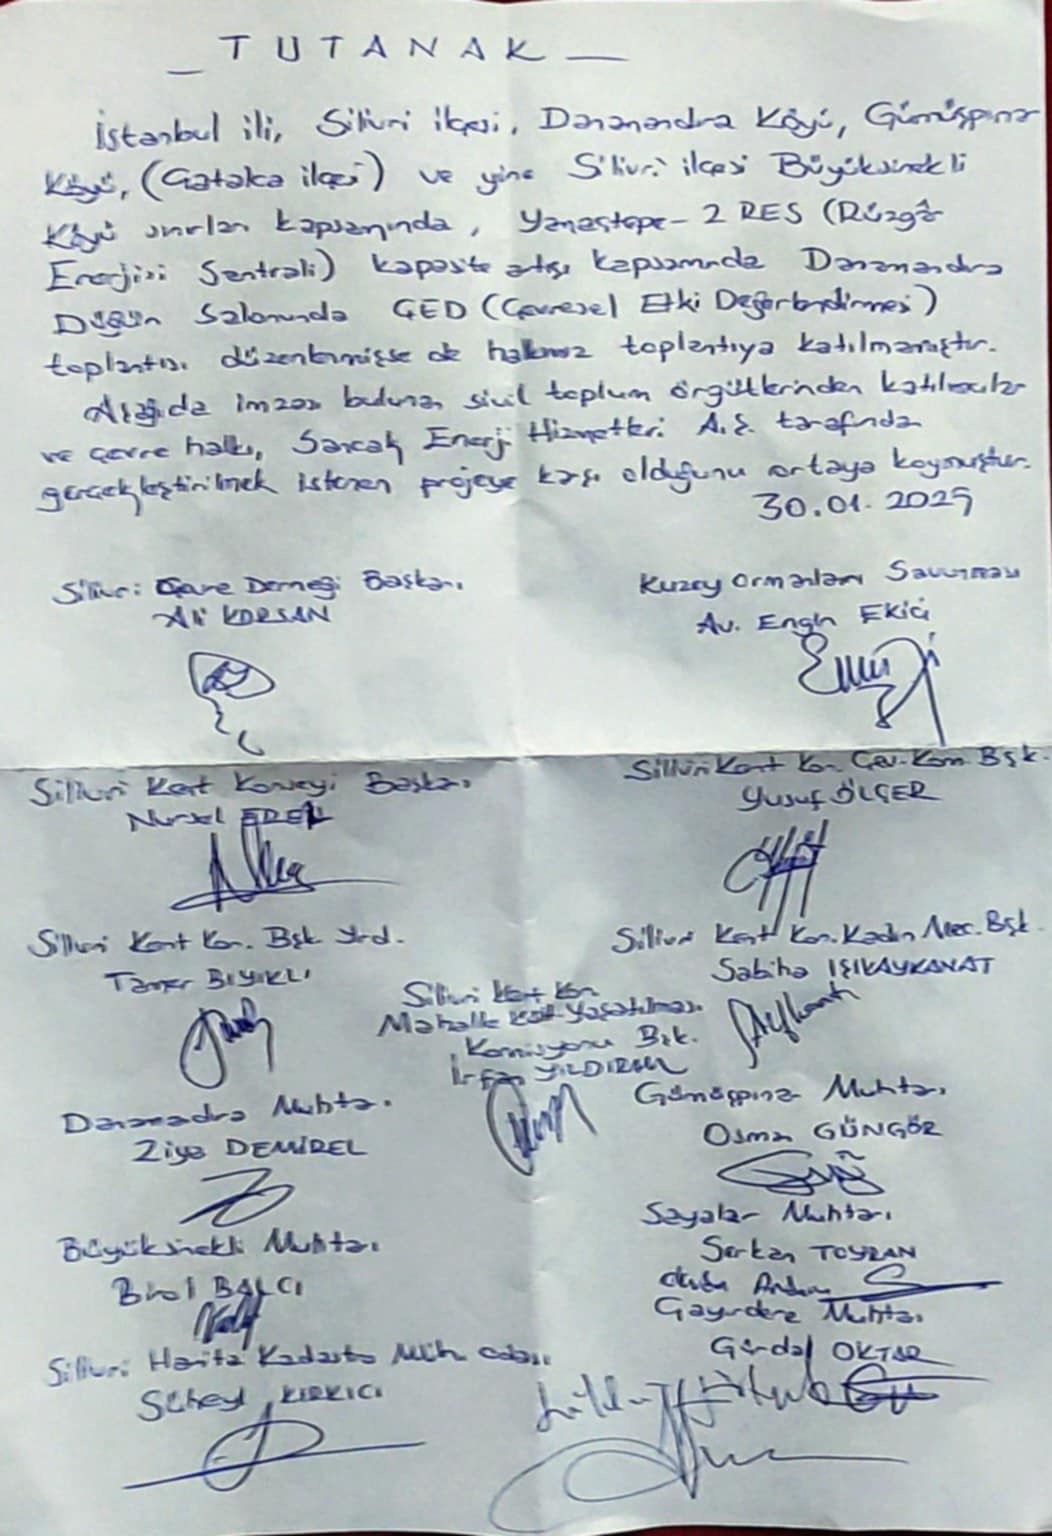 _ T U T A N A K _
İstanbul ili, Silivri ilçesi, Danamandra Köyü, Gümüşpınar
Köyü, (Çatalca ilçesi) ve yine Silivri ilçesi Büyüksinekli
Köyü sınırları kapsamında, Yamaçtepe-2 RES (Rüzgâr
Enerjisi Santrali) kapasite artışı kapsamında Danamandra
Düğün Salonunda ÇED (Çevresel Etki Değerlendirmesi)
toplantısı düzenlenmişse de halkımız toplantıya katılmamıştır.
Aşağıda imzası bulunan sivil toplum örgütlerinden katılımcılar
ve çevre halkı, Sancak Enerji Hizmetleri A.Ş. tarafından
gerçekleştirilmek istenen projeye karşı olduğunu ortaya koymuştur.
30.01.2025
Silivri Çevre Derneği Başkanı
Ali KORSAN
Kuzey Ormanları Savunması
Av. Engin EKİCİ
Silivri Kent Konseyi Başkanı
Nursel EREN
Silivri Kent Kon. Çev. Kom. Bşk.
Yusuf ÖLÇER
Silivri Kent Kon. Bşk. Yrd.
Tamer BIYIKLI
Silivri Kent Kon. Kadın Mec. Bşk.
Sabiha IŞIKAYKANAT
Silivri Kent Kon.
Mahalle Yaşatılması
Komisyonu Bşk.
İrfan YILDIRIM
Danamandra Muhtarı
Ziya DEMİREL
Gümüşpınar Muhtarı
Osman GÜNGÖR
Büyüksinekli Muhtarı
Birol BALCI
Sayalar Muhtarı
Serkan TOYRAN
Gayırdere Muhtarı
Gürdal OKTAR
Silivri Harita Kadastro Müh. odası
Süheyl KIRKICI